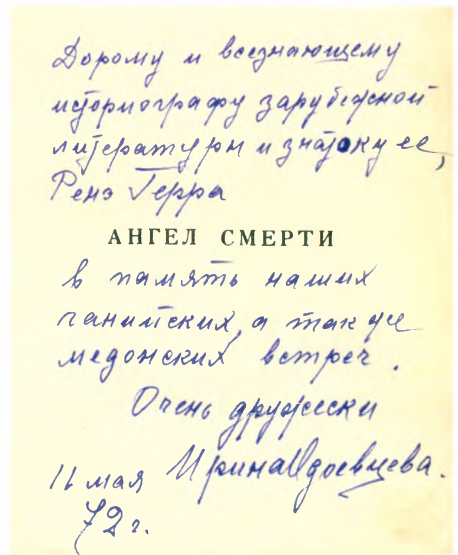 Дорому и всезнающему
историографу зарубежной
литературы и знатоку ее,
Ренэ Герра
АНГЕЛ СМЕРТИ
в память наших
ганийских, а так же
медонских встреч.
Очень дружески
Ирина Одоевцева.
11 мая
72 г.